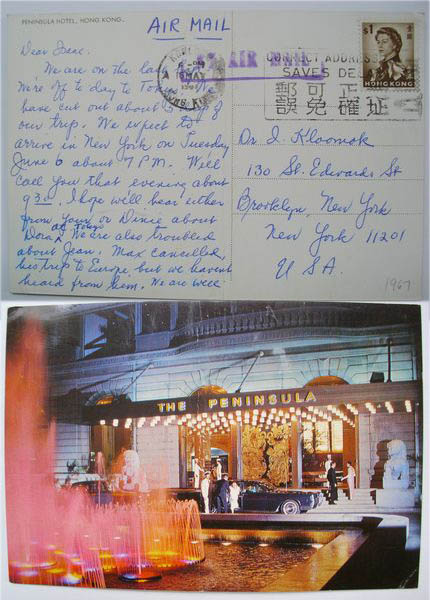 PENINSULA HOTEL, HONG KONG.
AIR MAIL
Dear Irene,
We are on the last
We're off to day to
have cut out about
our trip. We expect to
arrive in New York on Tuesday
June 6 about 7 P.M. Will
call you that evening about
9 30. I hope we'll hear either
from you or Dixie about
Dora at Tokyo
We are also troubled
about Jean. Max cancelled
his trip to Europe but we haven't
heard from him. We are well
AIR MAIL
CORRECT ADDRESS
SAVES DEL
郵可正
誤免確址
$1
HONG KONG
Dr I. Kloomok
130 St. Edwards St
Brooklyn, New York
New York 11201
U SA.
1967
THE PENINSULA